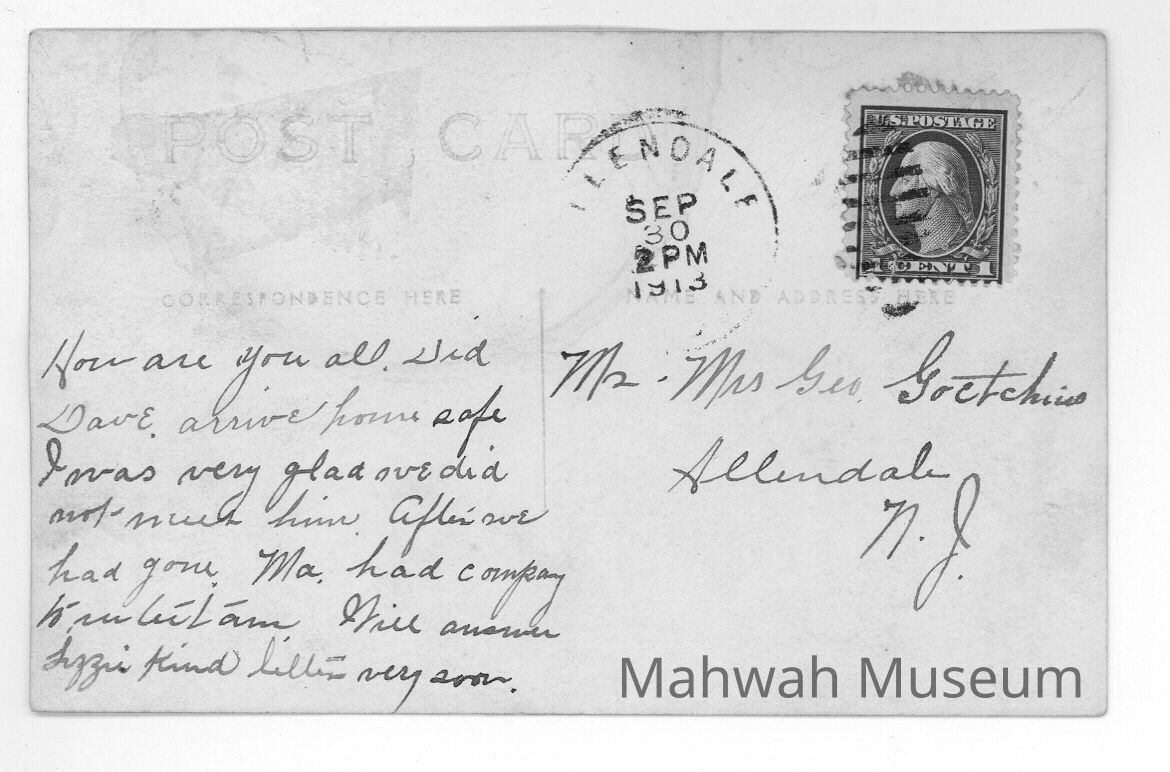 POST CARD
ALLENDALE
SEP
30
2 PM
1913
U.S. POSTAGE
1 CENT 1
CORRESPONDENCE HERE
NAME AND ADDRESS HERE
How are you all. Did
Dave. arrive home safe
I was very glad we did
not meet him. After we
had gone. Ma. had company
to, Will answer
Lizzie kind letter very soon.
Mr. Mrs Geo. Goetchius
Allendale
N. J.
Mahwah Museum